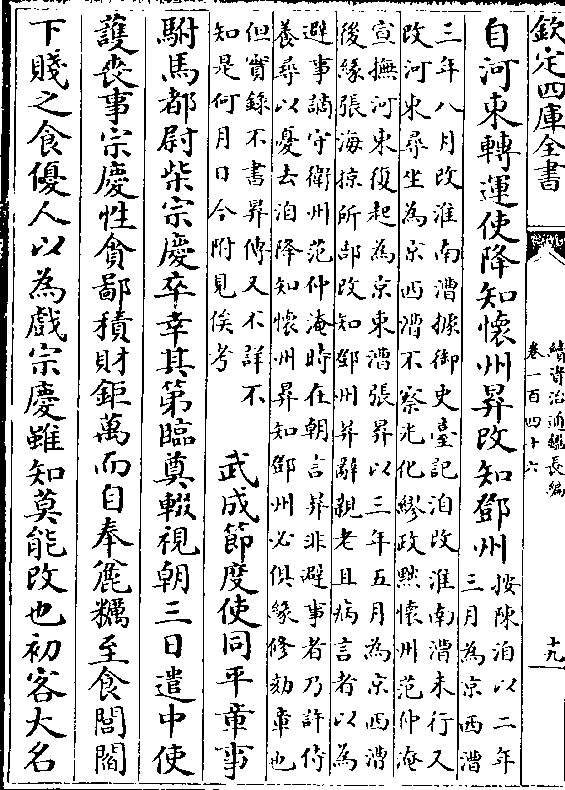 欽定四庫全書
續資治通鑑長編
卷一百四十六
十九
自河東轉運使降知懷州昇改知鄧州
按陳洎以二年
三月為京西漕
三年八月改淮南漕據御史臺記洎改淮南漕未行又
改河東尋坐為京西漕不察光化繆政黜懷州范仲淹
宣撫河東復起為京東漕張昇以三年五月為京西漕
後緣張海掠所部改知鄧州昇辭親老且病言者以為
避事謫守衛州范仲淹時在朝言昇非避事者乃許侍
養尋以憂去洎降知懷州昇知鄧州必俱緣修劾車也
但實錄不書昇傳又不詳不
知是何月日今附見俟考
武成節度使同平章事
駙馬都尉柴宗慶卒幸其第臨奠輟視朝三日遣中使
護喪事宗慶性貪鄙積財鉅萬而自奉麄糲至食閭閻
下賤之食優人以為戲宗慶雖知莫能改也初客大名